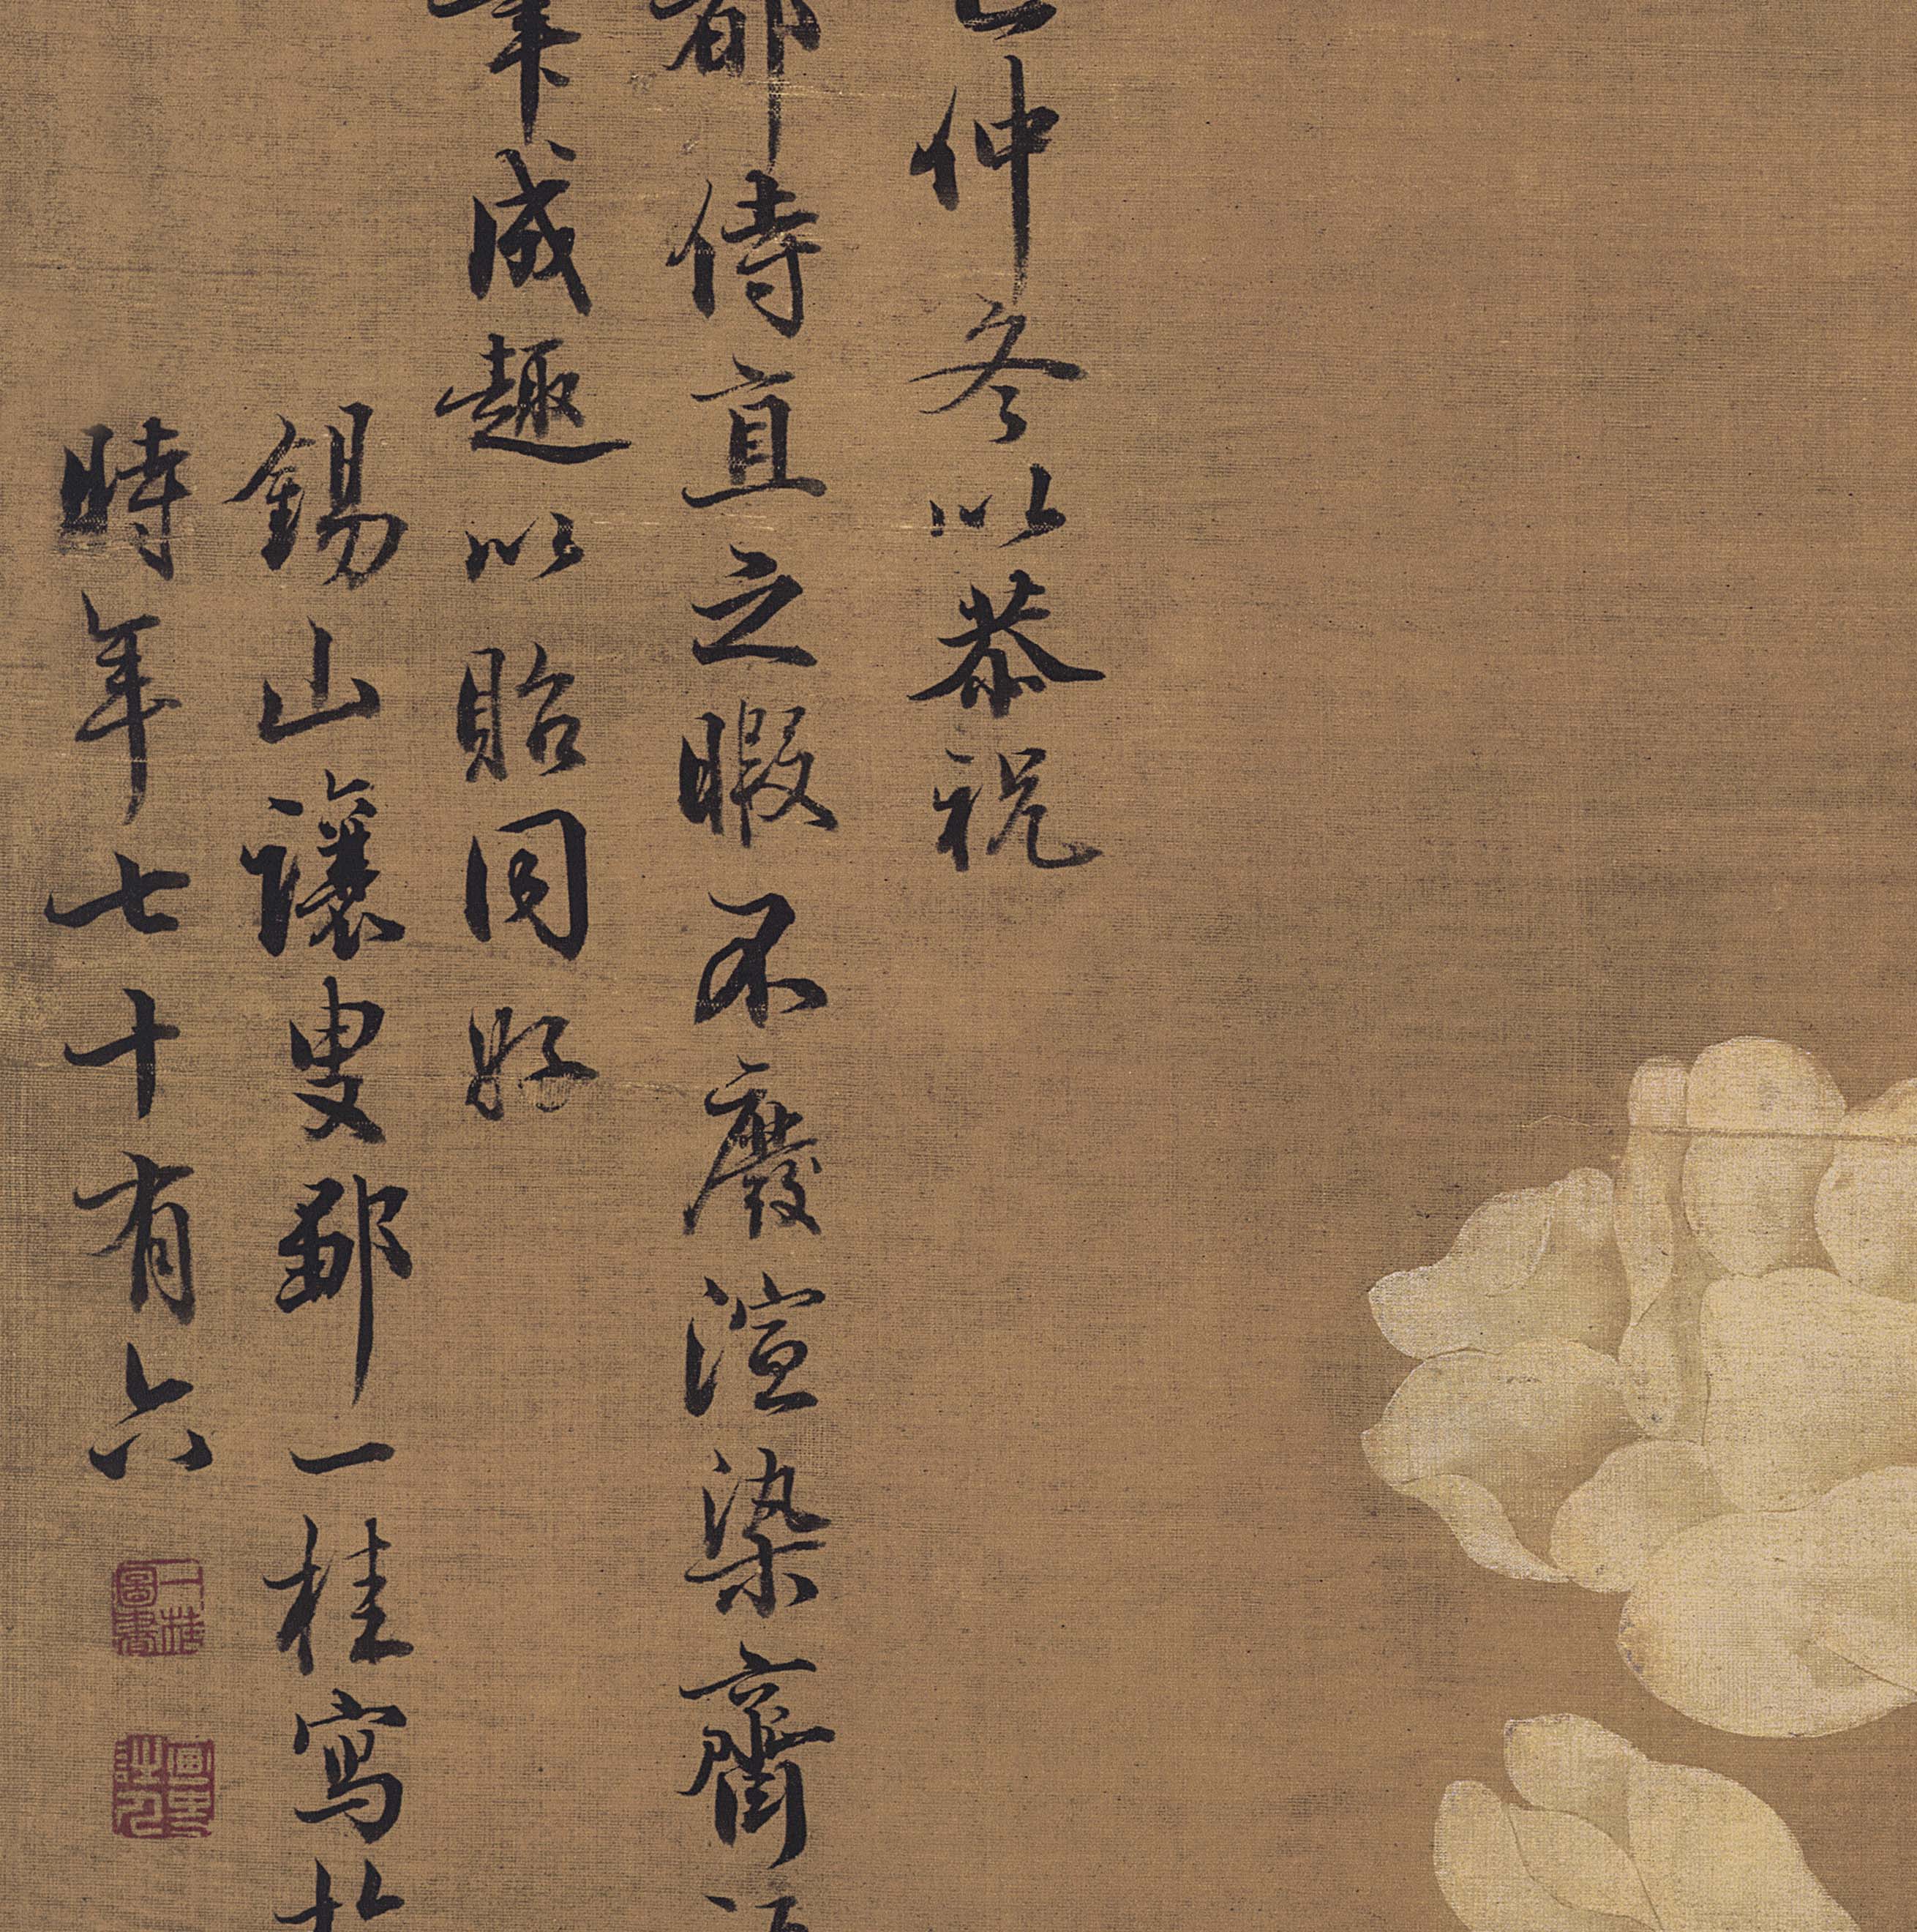 仲冬以恭祝
都侍直之暇不廢渲染齊
筆成趣以貽同好
錫山讓叟鄒一桂寫於
時年七十有六
一桂圖書